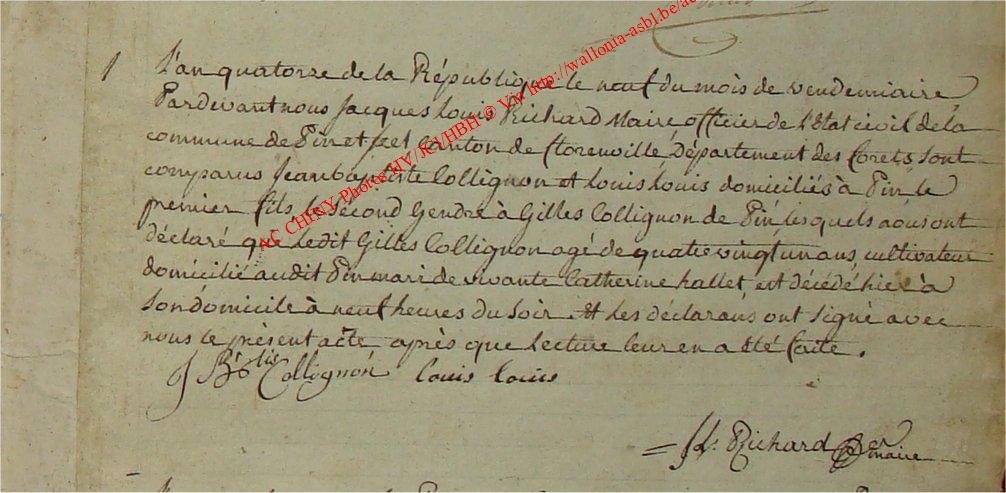 1 L'an quatorze de la République le neuf du mois de vendemiaire,
Pardevant nous Jacques Louis Richard Maire officier de l'Etat civil de la
commune de Pin et Izel Canton de florenville, Département des forêts, sont
comparus Jean baptiste Collignon et Louis Louis domiciliés à Pin, le
premier fils, le Sécond Gendre à Gilles Collignon de Pin, lesquels nous ont
déclaré que ledit Gilles Collignon agé de quatre vingt un ans, cultivateur
domicilié audit Pin mari de vivante Catherine hallet est décédé hier à
son domicile à neuf heures du soir Et les déclarans ont signé avec
nous le présent acte après que lecture leur en a été faite.
J Bte Collignon Louis Louis
= JL. Richard
maire
AC CHINY Photos HV/JRT/HBH © Via http://wallonia-asbl.be/ac